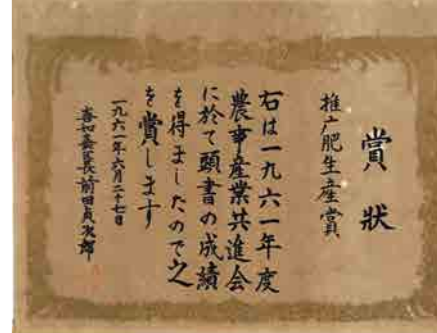 賞狀
推广肥生産賞
右は一九六一年度
農事産業共進会
に於て頭書の成績
を得ましたので之
を賞します
一九六一年六月二十七日
喜如嘉区長前田貞次郎